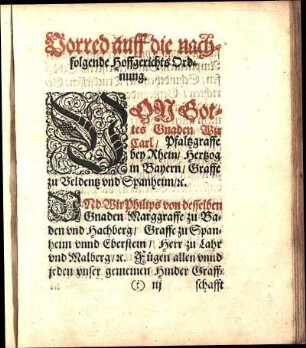 Vorred auff die nach-
folgende Hoffgerichts Ord-
nung.
VON Got-
tes Gnaden Wir
Carl / Pfaltzgraffe
bey Rhein / Hertzog
in Bayern / Graffe
zu Veldentz vnd Spanheim / ꝛc.
VNd Wir Philips von desselben
Gnaden Marggraffe zu Ba-
den vnd Hachberg / Graffe zu Span-
heim vnnd Eberstein / Herr zu Lahr
vnd Malberg / ꝛc. Fügen allen vnnd
jeden vnser gemeinen Hinder Graff-
(:) iij schafft